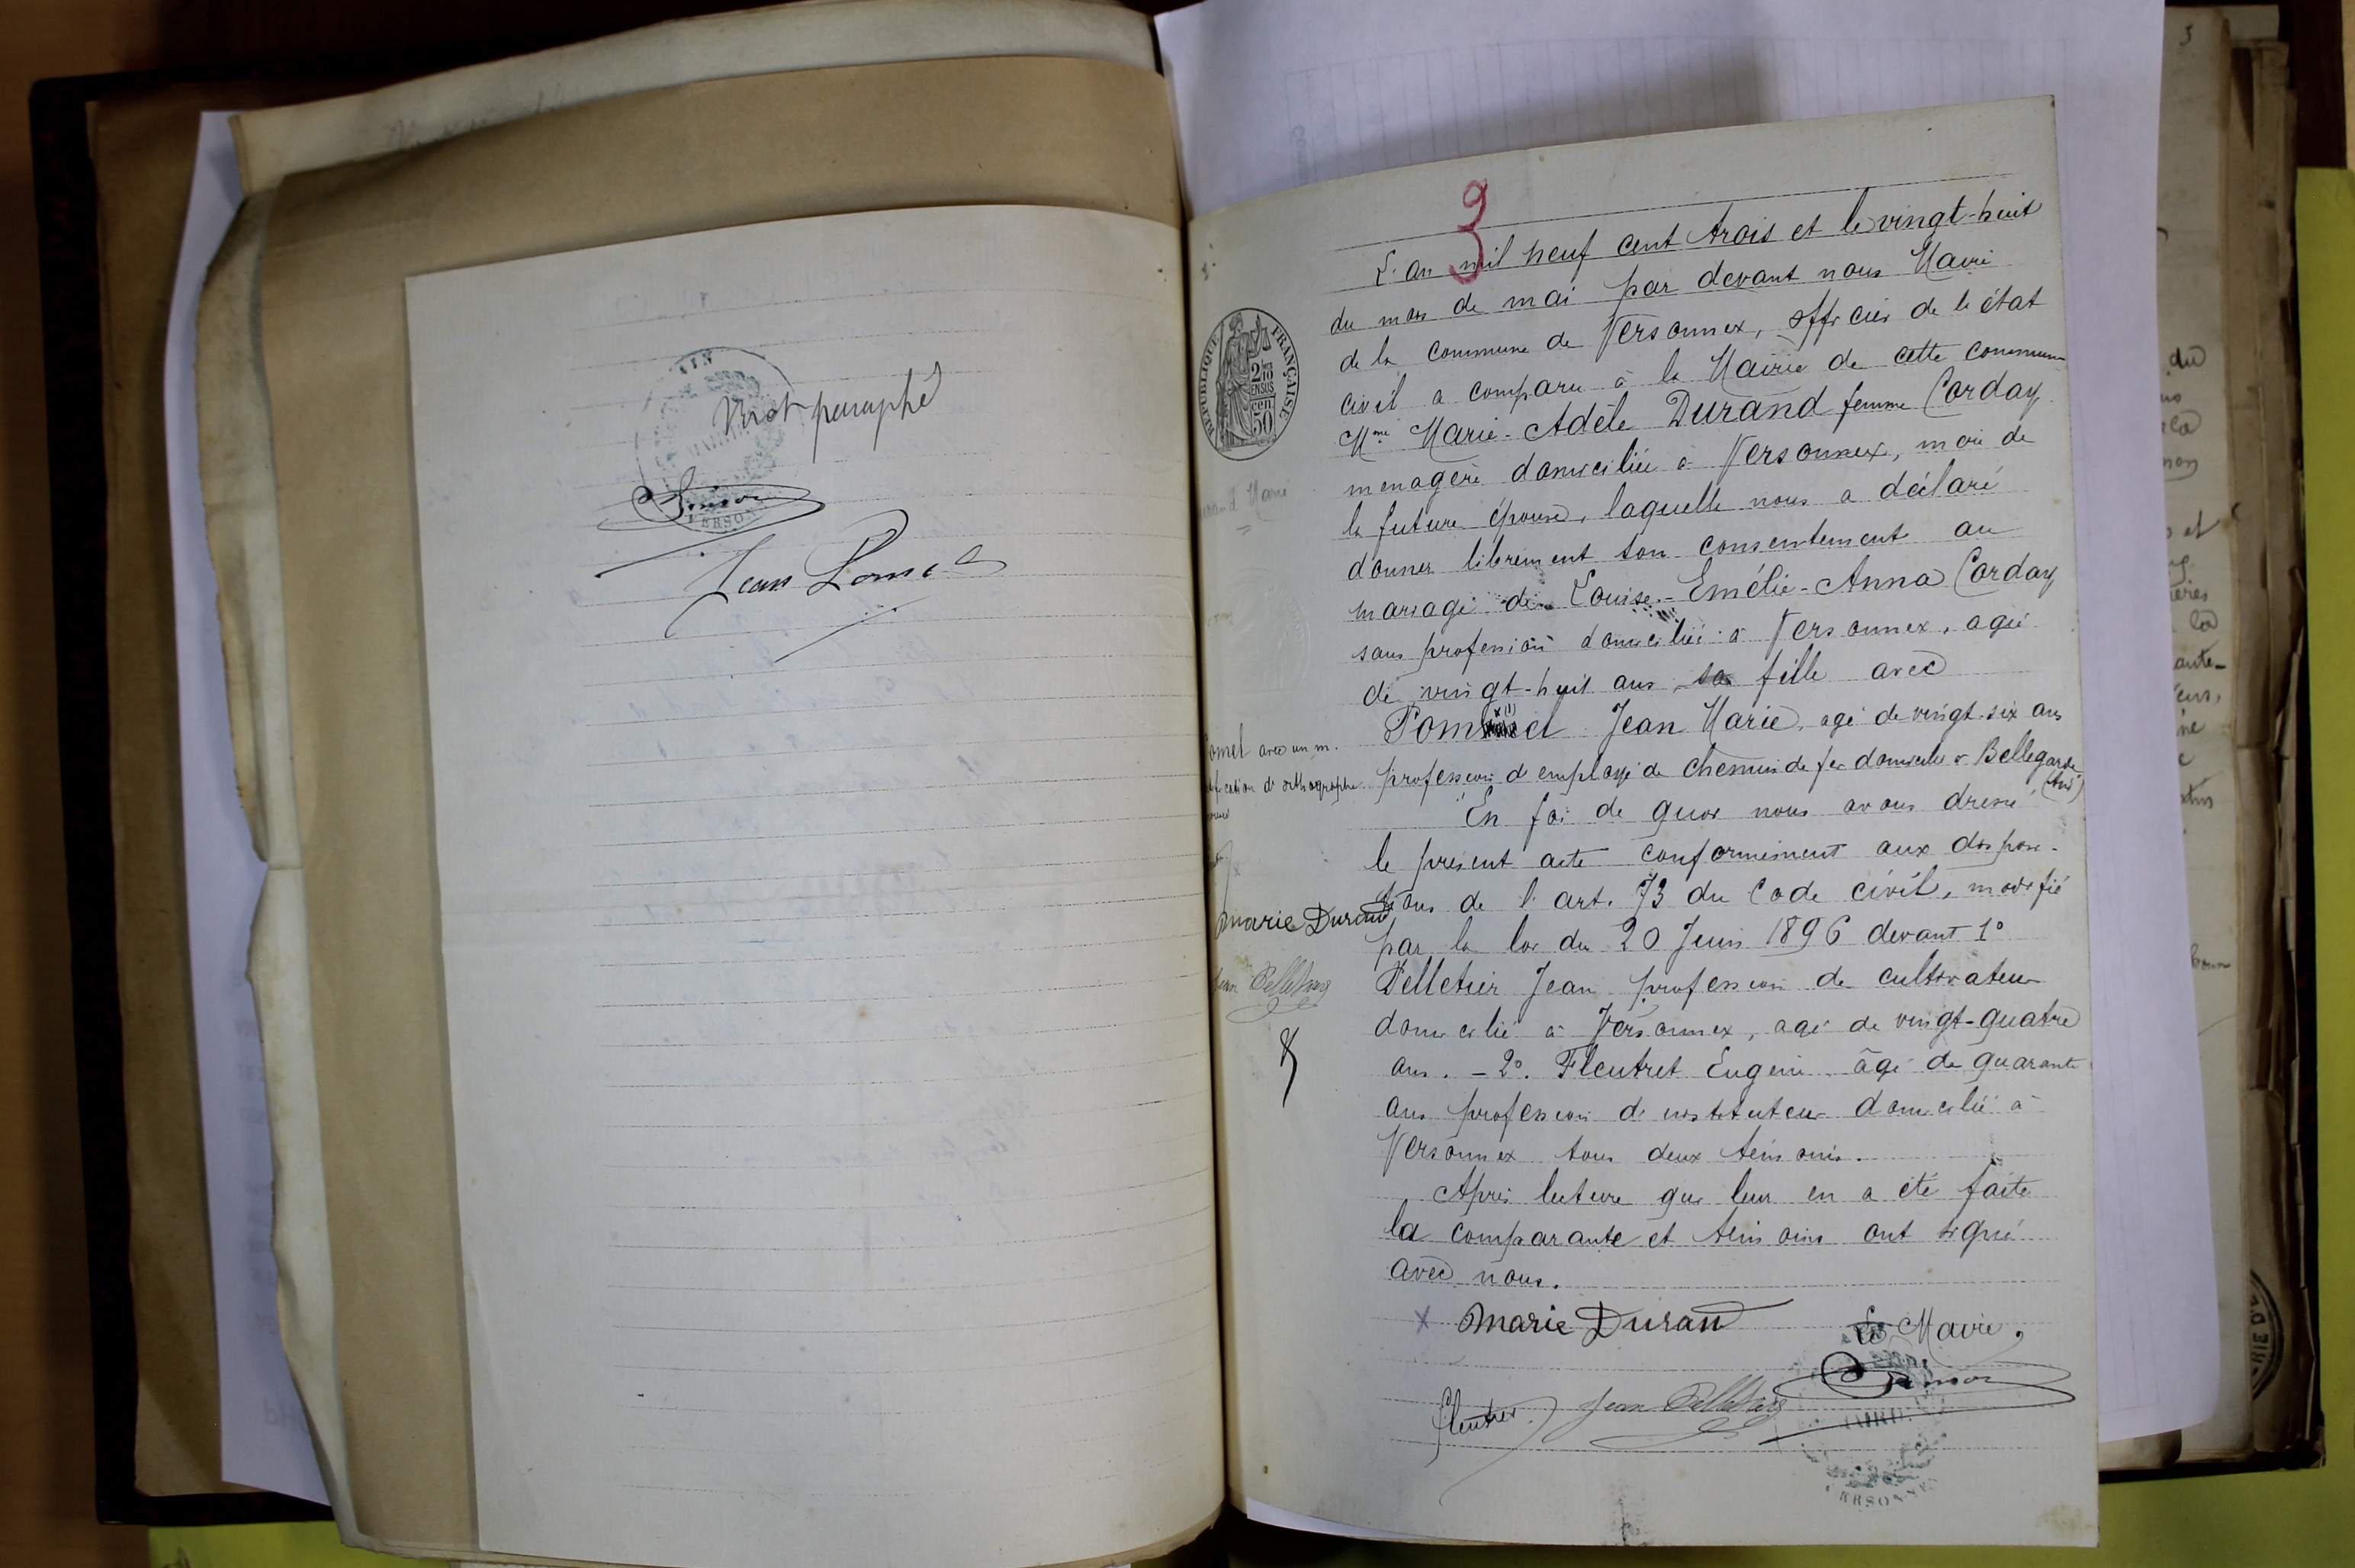 Vu et paraphé
Jean Pomel
9
L'an mil neuf cent trois et le vingt-huit
du mois de mai par devant nous Maire
de la commune de Versonnex, officier de l'état
civil a comparu à la Mairie de cette commune
Mme Marie-Adèle Durand femme Corday
menagère domiciliée à Versonnex, mère de
la future épouse, laquelle nous a déclaré
donner librement son consentement au
mariage de Louise-Emélie-Anna Corday
sans profession domiciliée à Versonnex, agée
de vingt-huit ans, sa fille avec
Pomel Jean Marie, agé de vingt-six ans
profession d'employé de chemin de fer domicilié à Bellegarde
(Ain)
En foi de quoi nous avons dressé
le présent acte conformément aux disposi-
tions de l'art. 73 du Code civil, modifié
par la loi du 20 Juin 1896 devant 1°
Pelletier Jean profession de cultivateur
domicilié à Versonnex, agé de vingt-quatre
ans. - 2°. Fleutret Eugène âgé de quarante
ans profession d'instituteur domicilié à
Versonnex tous deux témoins.
Après lecture que leur en a été faite
la comparante et témoins ont signé
avec nous.
x Marie Durand
Le Maire,
Fleutret Jean Pelletier
MAIRIE
RÉPUBLIQUE FRANÇAISE
2/10 EN SUS
50 cen
omel avec un m.
d'orthographe
Marie Durand
Jean Pelletier